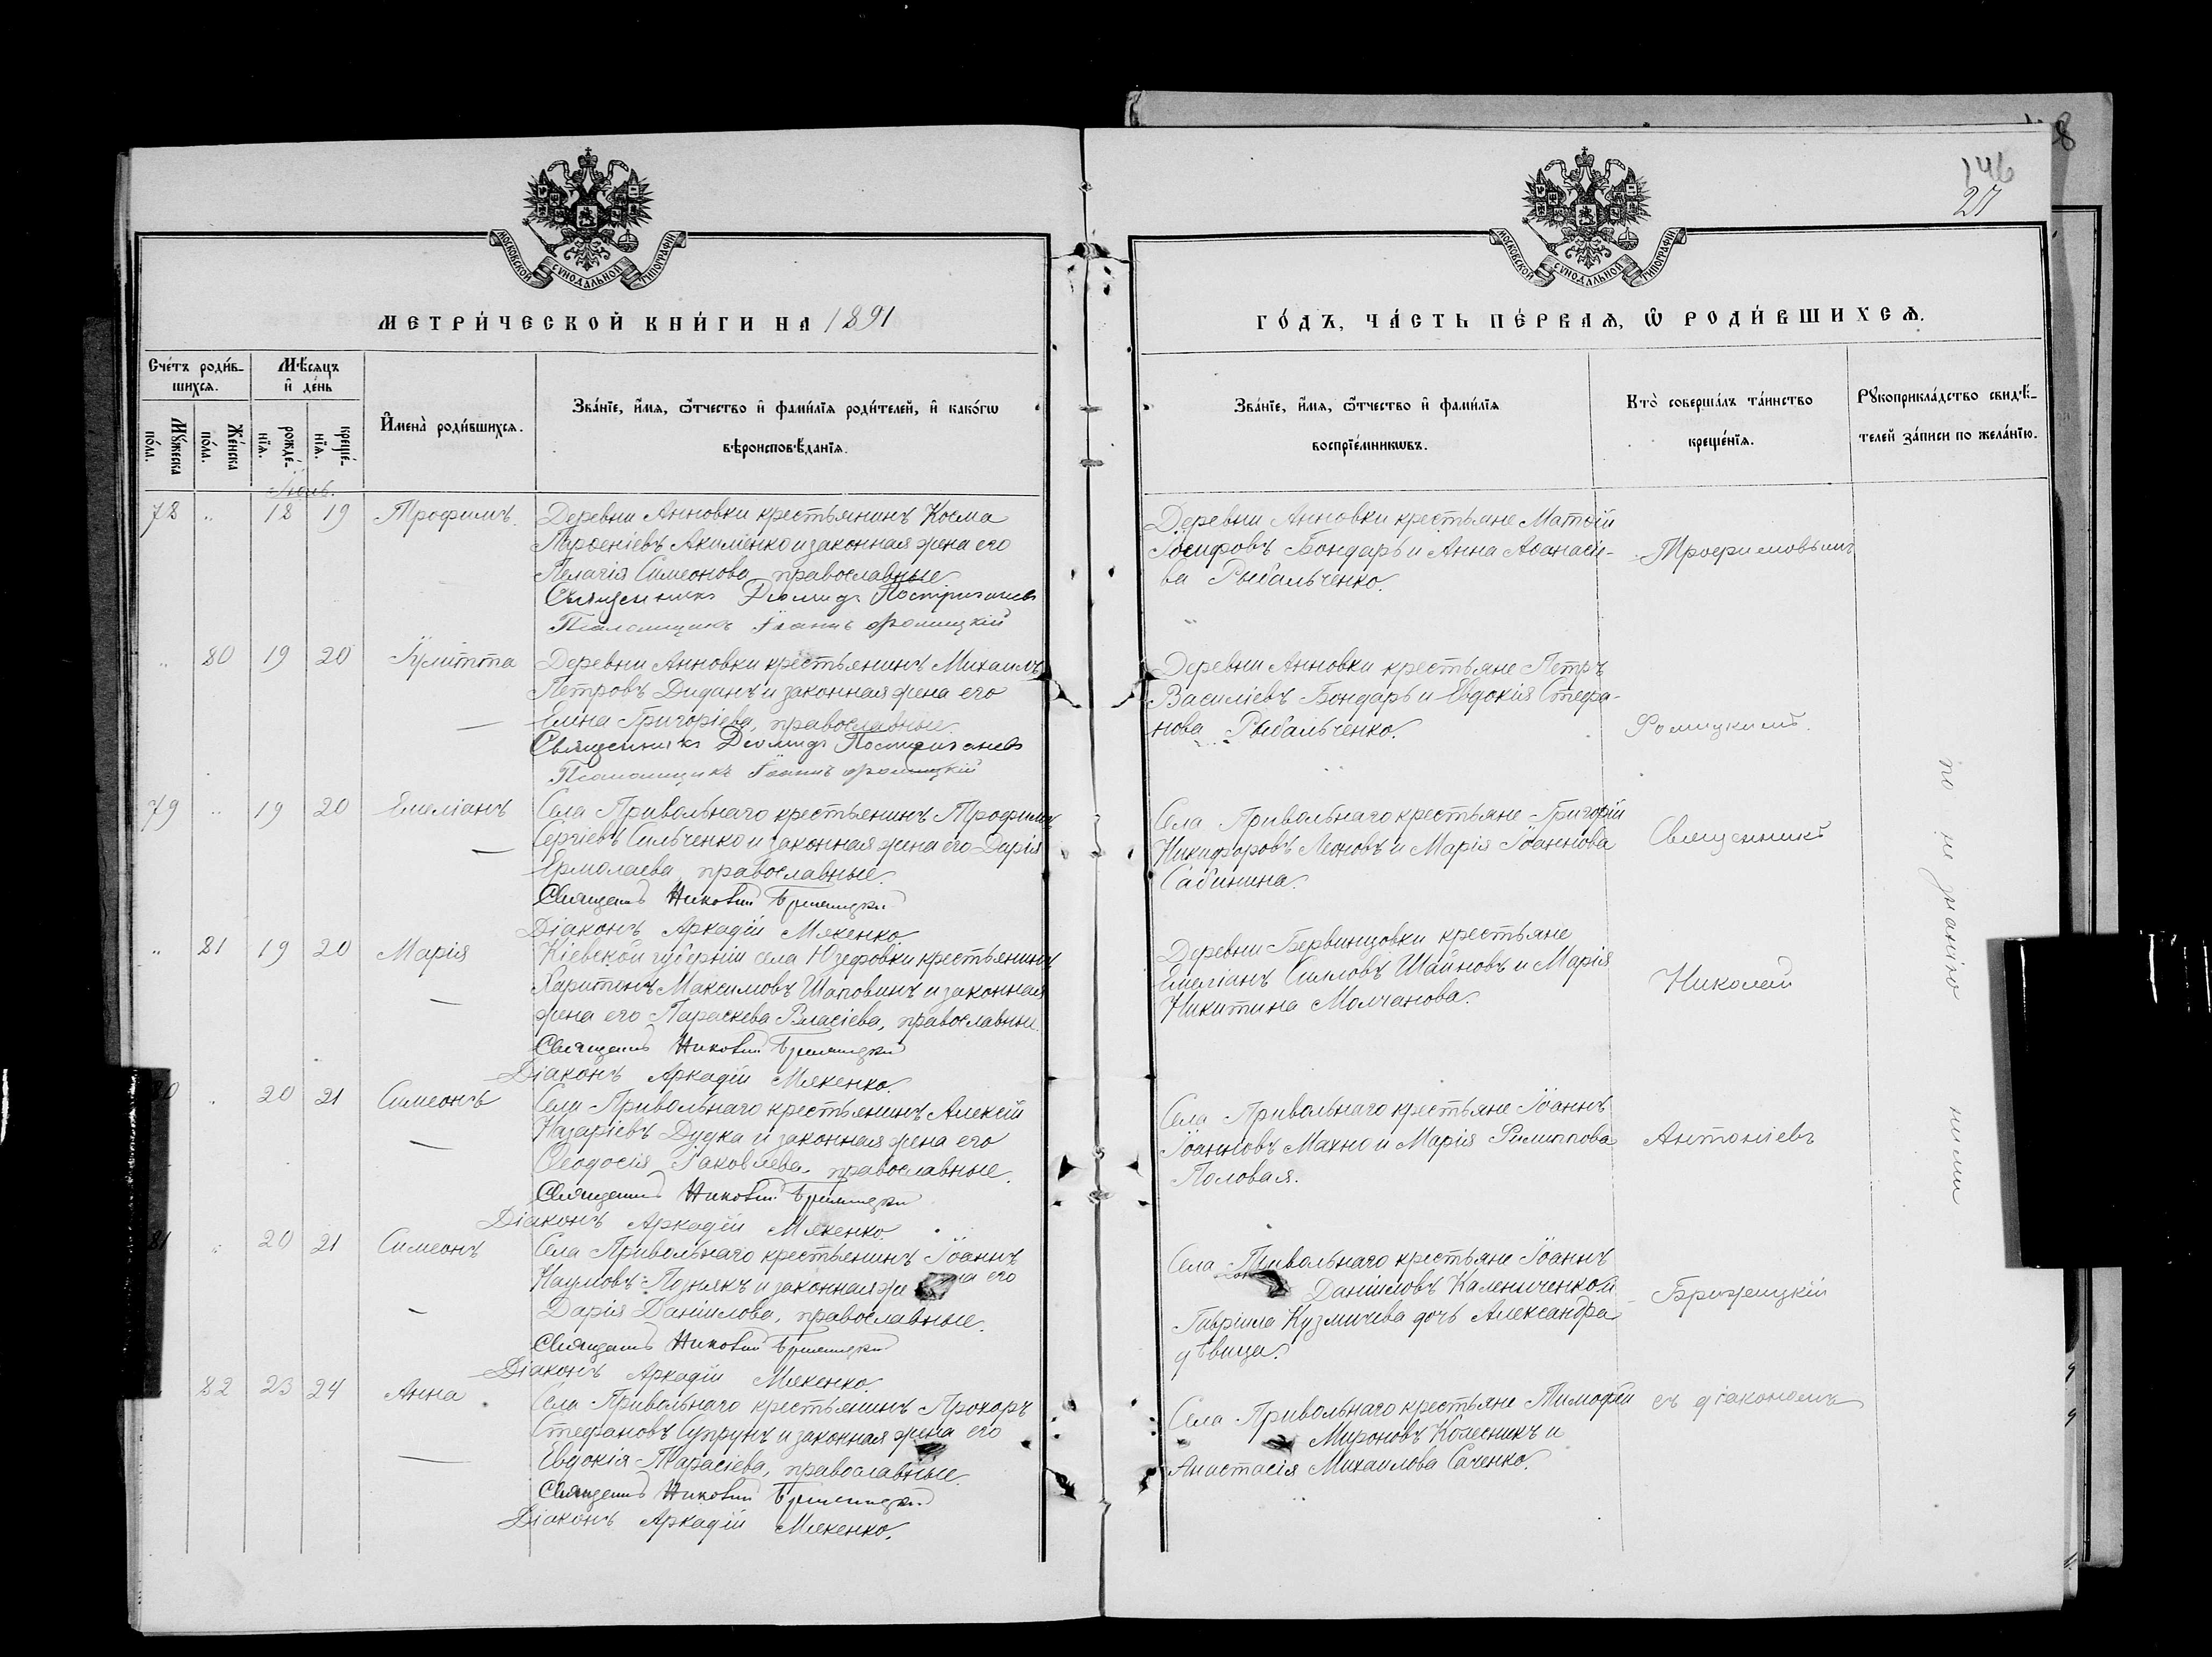 МОСКОВСКОЙ СѴНОДАЛЬНОЙ ТИПОГРАФІИ
МЕТРИ́ЧЕСКОЙ КНИ́ГИ НА 1891
Сче́тъ роди́в-
шихсѧ.
Мꙋ́жеска
по́ла.
Же́нска
по́ла.
Мѣ́сѧцъ
и҆ де́нь
рожде́-
нїѧ.
креще́-
нїѧ.
И҆мена̀ роди́вшихсѧ.
Зва́нїе, и҆́мѧ, ѻ҆́тчество и҆ фами́лїѧ роди́телей, и҆ како́гѡ
вѣроисповѣ́данїѧ.
Іюль.
78 „ 18 19 Трофимъ.
Деревни Анновки крестьянинъ Косма
Парѳеніевъ Акименко и законная жена его
Пелагія Симеонова, православные
Священникъ Діомидъ
Псаломщикъ Іоаннъ Фомицкій
„ 80 19 20 Іулитта
Деревни Анновки крестьянинъ Михаилъ
Петровъ Диданъ и законная жена его
Елена Григоріева, православные.
Священникъ Діомидъ
Псаломщикъ Іоаннъ Фомицкій
79 „ 19 20 Емеліанъ
Села Привольнаго крестьянинъ Трофимъ
Сергіевъ Сильченко и законная жена его Дарія
Ермолаева, православные.
Священ. Николай Брижицкій
Діаконъ Аркадій Мякенко
„ 81 19 20 Марія
Кіевской губерніи села Юзефовки крестьянинъ
Харитонъ Максимовъ Шаповинъ и законная
жена его Параскева Власіева, православные.
Священ. Николай Брижицкій
Діаконъ Аркадій Мякенко.
80 „ 20 21 Симеонъ
Села Привольнаго крестьянинъ Алексій
Назаріевъ Дудка и законная жена его
Ѳеодосія Іаковлева, православные.
Священ. Николай Брижицкій
Діаконъ Аркадій Мякенко.
81 „ 20 21 Симеонъ
Села Привольнаго крестьянинъ Іоаннъ
Наумовъ Познякъ и законная жена его
Дарія Даніилова, православные.
Священ. Николай Брижицкій
Діаконъ Аркадій Мякенко.
82 23 24 Анна
Села Привольнаго крестьянинъ Прохоръ
Стефановъ Супрунъ и законная жена его
Евдокія Тарасіева, православные.
Священ. Николай Брижицкій
Діаконъ Аркадій Мякенко.
146
27
МОСКОВСКОЙ СѴНОДАЛЬНОЙ ТИПОГРАФІИ
ГО́ДЪ, ЧА́СТЬ ПЕ́РВАѦ, Ѡ҆ РОДИ́ВШИХСѦ.
Зва́нїе, и҆́мѧ, ѻ҆́тчество и҆ фами́лїѧ
воспрїе́мникѡвъ.
Кто̀ соверша́лъ та́инство
креще́нїѧ.
Рꙋкоприкла́дство свидѣ́-
телей за́писи по жела́нїю.
Деревни Анновки крестьяне Матѳій
Іосифовъ Бондарь и Анна Аѳанасіе-
ва Рыбальченко.
Трофимовымъ
Деревни Анновки крестьяне Петръ
Василіевъ Бондарь и Евдокія Стефа-
нова Рыбальченко.
Фомицкимъ.
Села Привольнаго крестьяне Григорій
Никифоровъ Леоновъ и Марія Іоаннова
Сабинина.
Священникъ
Деревни Бервинцовки крестьяне
Емеліанъ Силловъ Шаиновъ и Марія
Никитина Молчанова.
Николай
Села Привольнаго крестьяне Іоаннъ
Іоанновъ Махно и Марія Филиппова
Половая.
Антоніевъ
Села Привольнаго крестьяне Іоаннъ
Даніиловъ Калениченко и
Гавріила Кузмичева дочь Александра
дѣвица.
Брижицкій
Села Привольнаго крестьяне Тимоѳей
Мироновъ Колесникъ и
Анастасія Михаилова Саченко.
съ діакономъ
по не знанію ними